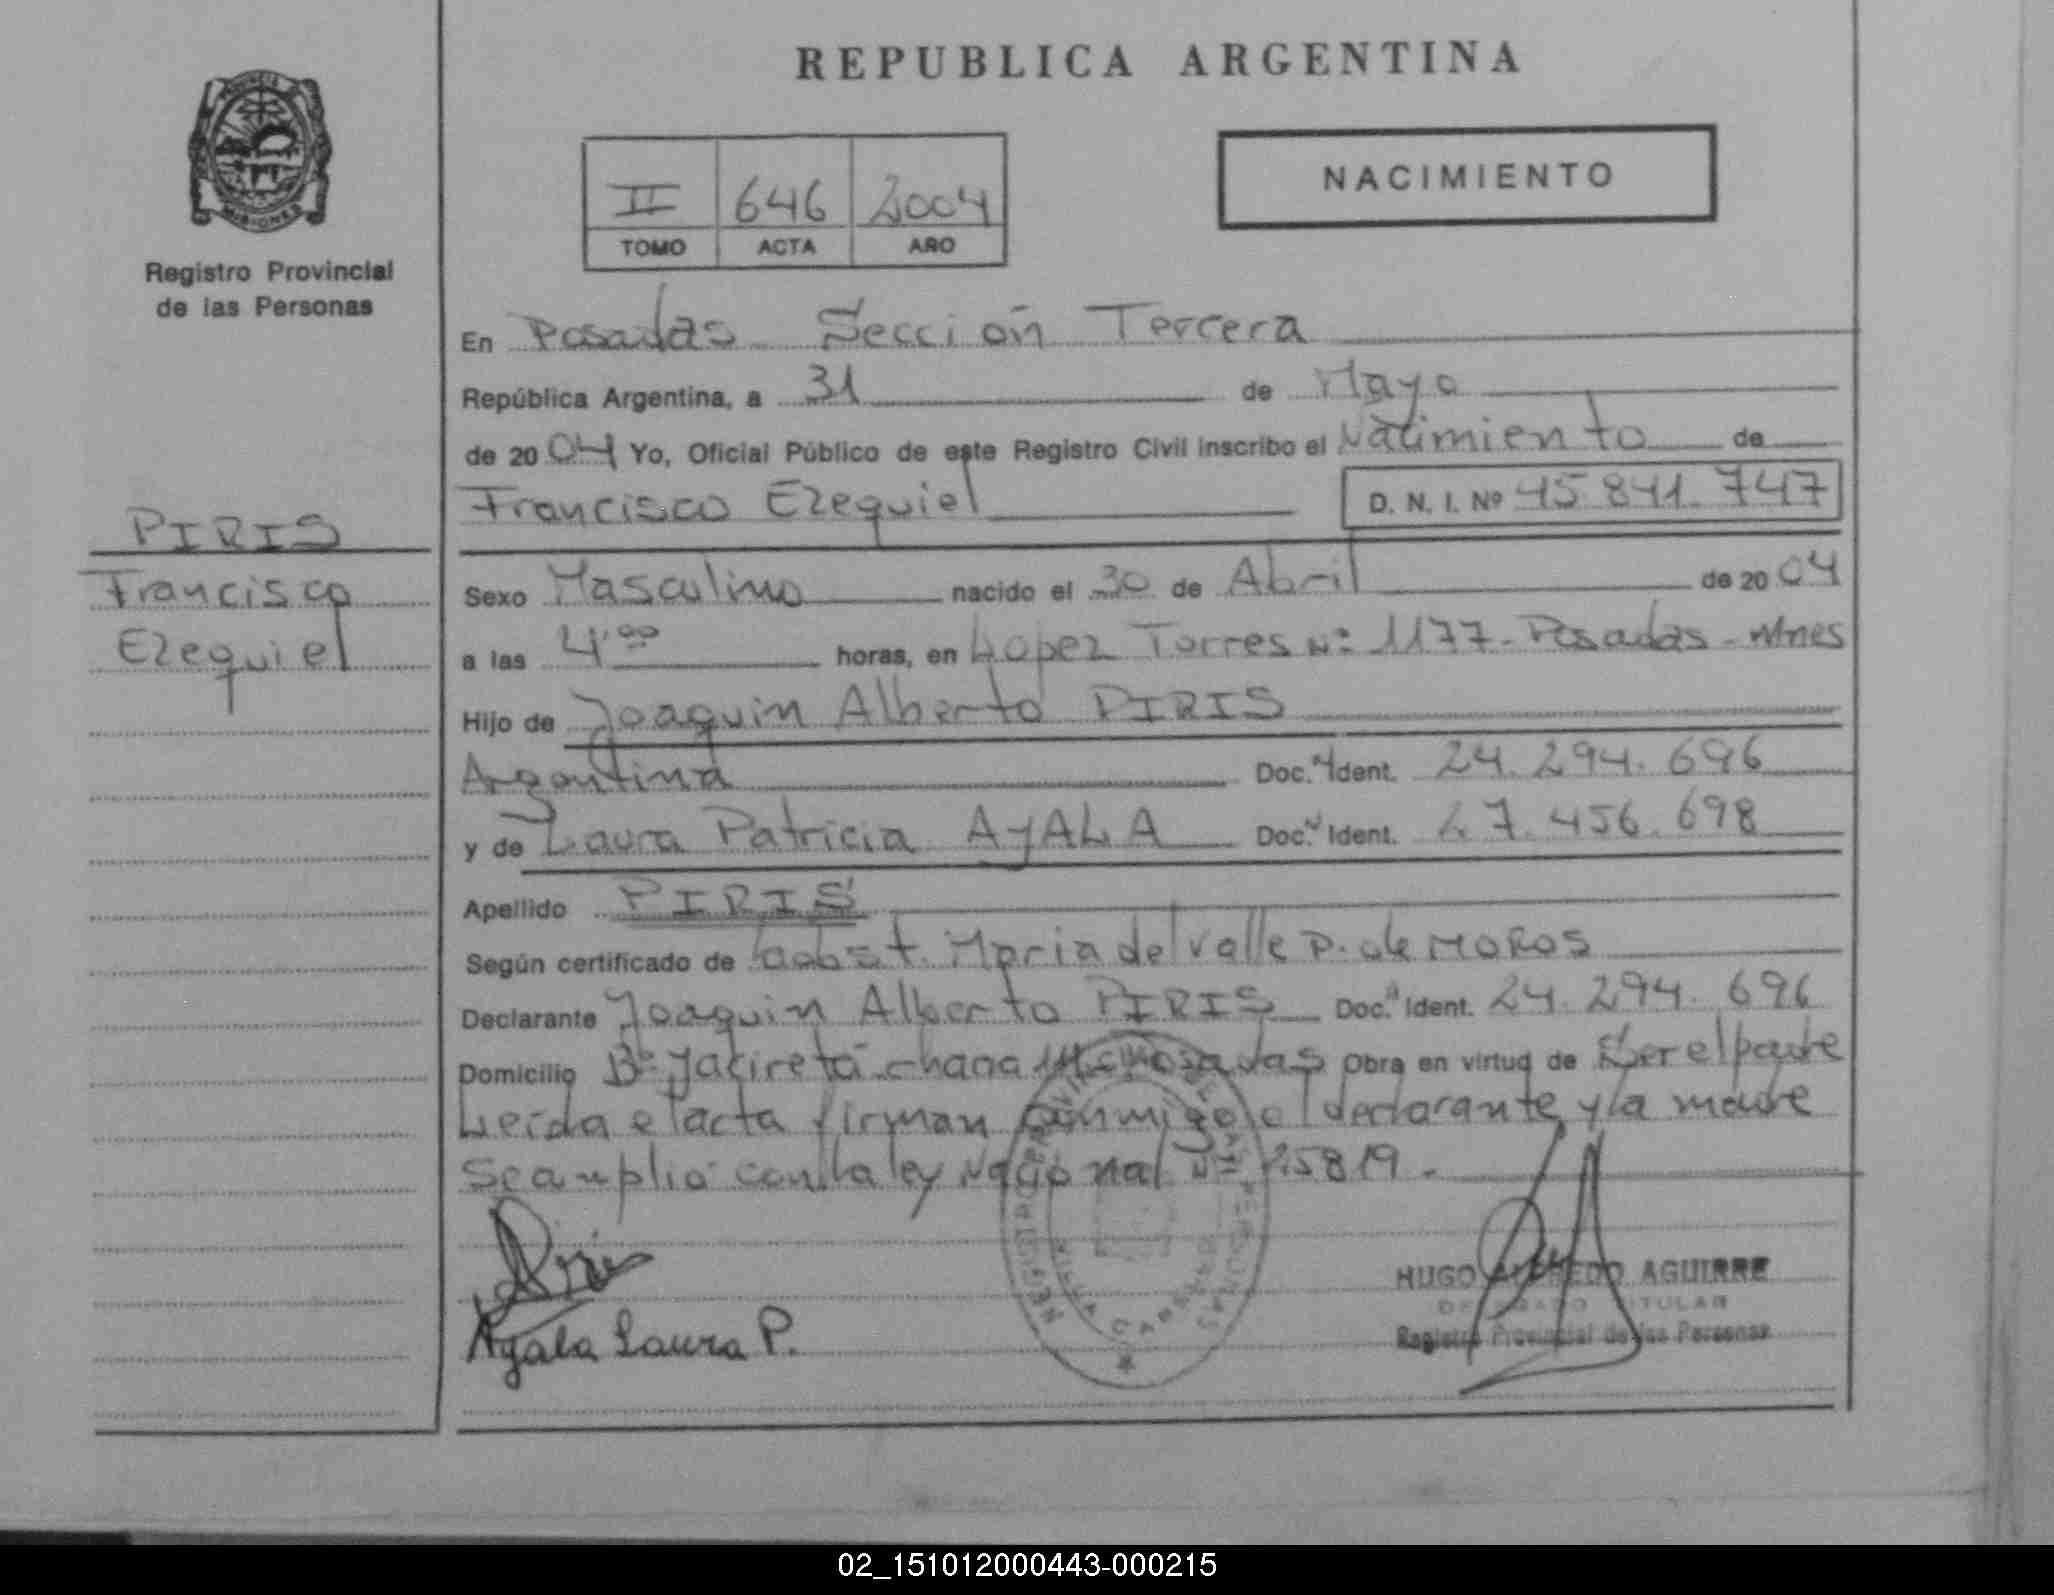 REPUBLICA ARGENTINA
PROVINCIA DE MISIONES
Registro Provincial
de las Personas
II 646 2004
TOMO ACTA AÑO
NACIMIENTO
En Posadas Sección Tercera
República Argentina, a 31 de Mayo
de 2004 Yo, Oficial Público de este Registro Civil inscribo el Nacimiento de
Francisco Ezequiel D. N. I. Nº 45.841.747
PIRIS
Francisco
Ezequiel
Sexo Masculino nacido el 30 de Abril de 2004
a las 4'00 horas, en Lopez Torres Nº 1177-Posadas-Mnes
Hijo de Joaquin Alberto PIRIS
Argentina Doc. Ident. 24.294.696
y de Laura Patricia AyALA Doc. Ident. 27.456.698
Apellido PIRIS
Según certificado de obst. Maria del Valle P. de MOROS
Declarante Joaquin Alberto PIRIS Doc. Ident. 24.294.696
Domicilio Bº Yaciretá chacra Posadas Obra en virtud de Ser el padre
Leída el acta firman conmigo el declarante y la madre
Se amplió con la ley Nacional Nº 25819.
Ayala Laura P.
HUGO ALFREDO AGUIRRE
DELEGADO TITULAR
Registro Provincial de las Personas
REGISTRO PROVINCIAL DE LAS PERSONAS
VILLA CABELLO
02_151012000443-000215